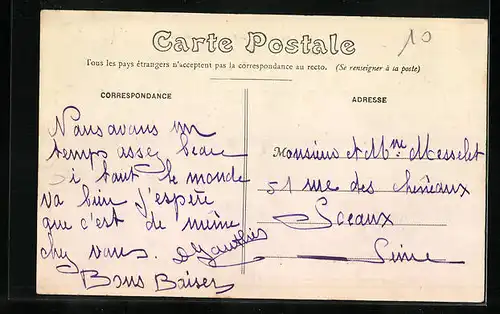 Carte Postale
10
Tous les pays étrangers n'acceptent pas la correspondance au recto. (Se renseigner à la poste)
CORRESPONDANCE
Nous avons un
temps assez beau
Ici tout le monde
va bien J'espère
que c'est de même
chez vous.
Bons Baisers
ADRESSE
Monsieur et Mme Messelet
51 rue des chéneaux
Sceaux
Seine